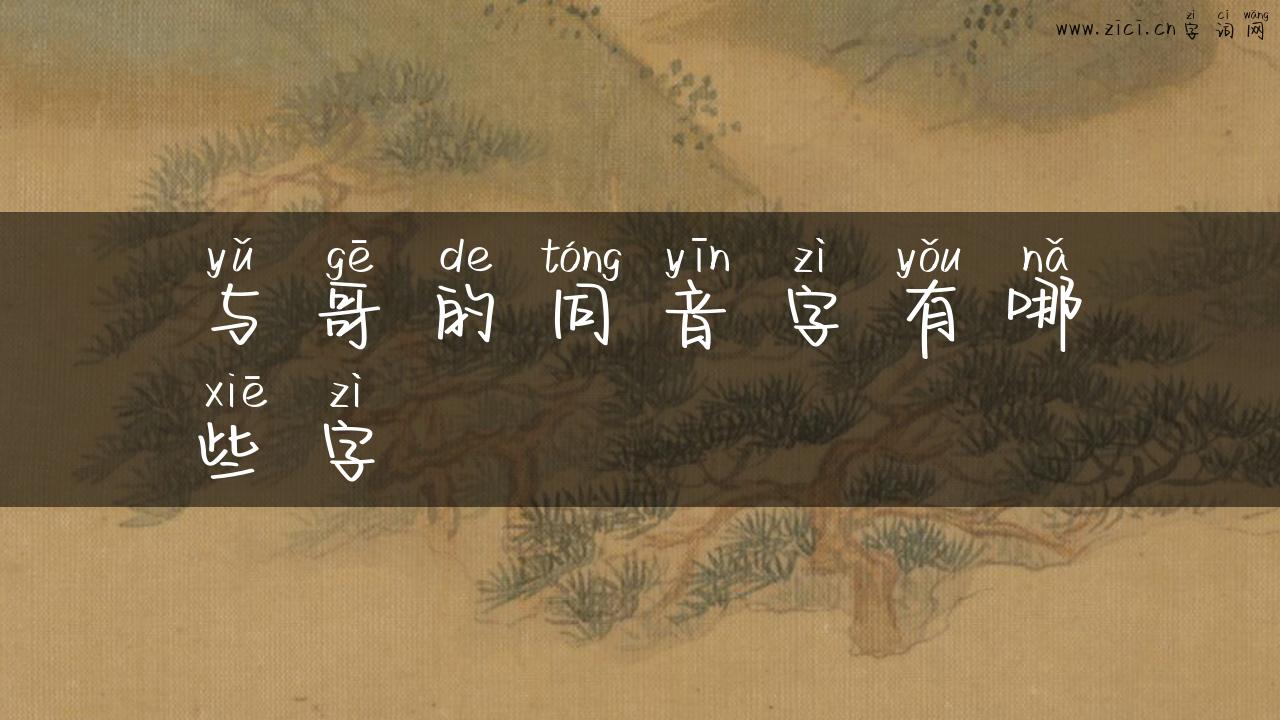 zì cí wǎng
www.zici.cn 字 词 网
yǔ gē de tóng yīn zì yǒu nǎ
与 哥 的 同 音 字 有 哪
xiē zì
些 字